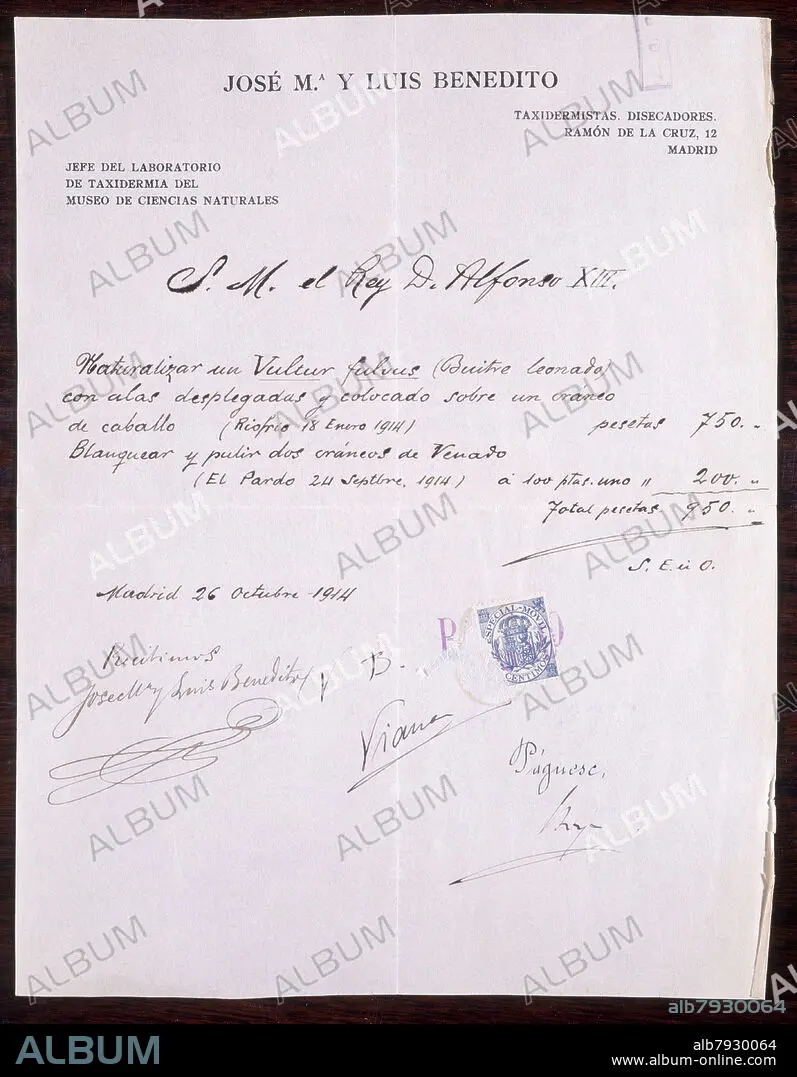 JOSÉ M.ª Y LUIS BENEDITO
TAXIDERMISTAS. DISECADORES.
RAMÓN DE LA CRUZ, 12
MADRID
JEFE DEL LABORATORIO
DE TAXIDERMIA DEL
MUSEO DE CIENCIAS NATURALES
S. M. el Rey D. Alfonso XIII.
Naturalizar un Vultur fulvus (Buitre leonado)
con alas desplegadas y colocado sobre un cráneo
de caballo (Riofrio 18 Enero 1914) pesetas 750. "
Blanquear y pulir dos cráneos de Venado
(El Pardo 24 Septbre. 1914) á 100 ptas. uno " 200. "
Total pesetas 950. "
S. E. ú O.
Madrid 26 Octubre 1914
ESPECIAL-MÓVIL
CENTIMOS
Recibimos
José Mª y Luis Benedito
Viana
Páguese,
ALBUM
alb7930064
ALBUM
alb7930064
www.album-online.com